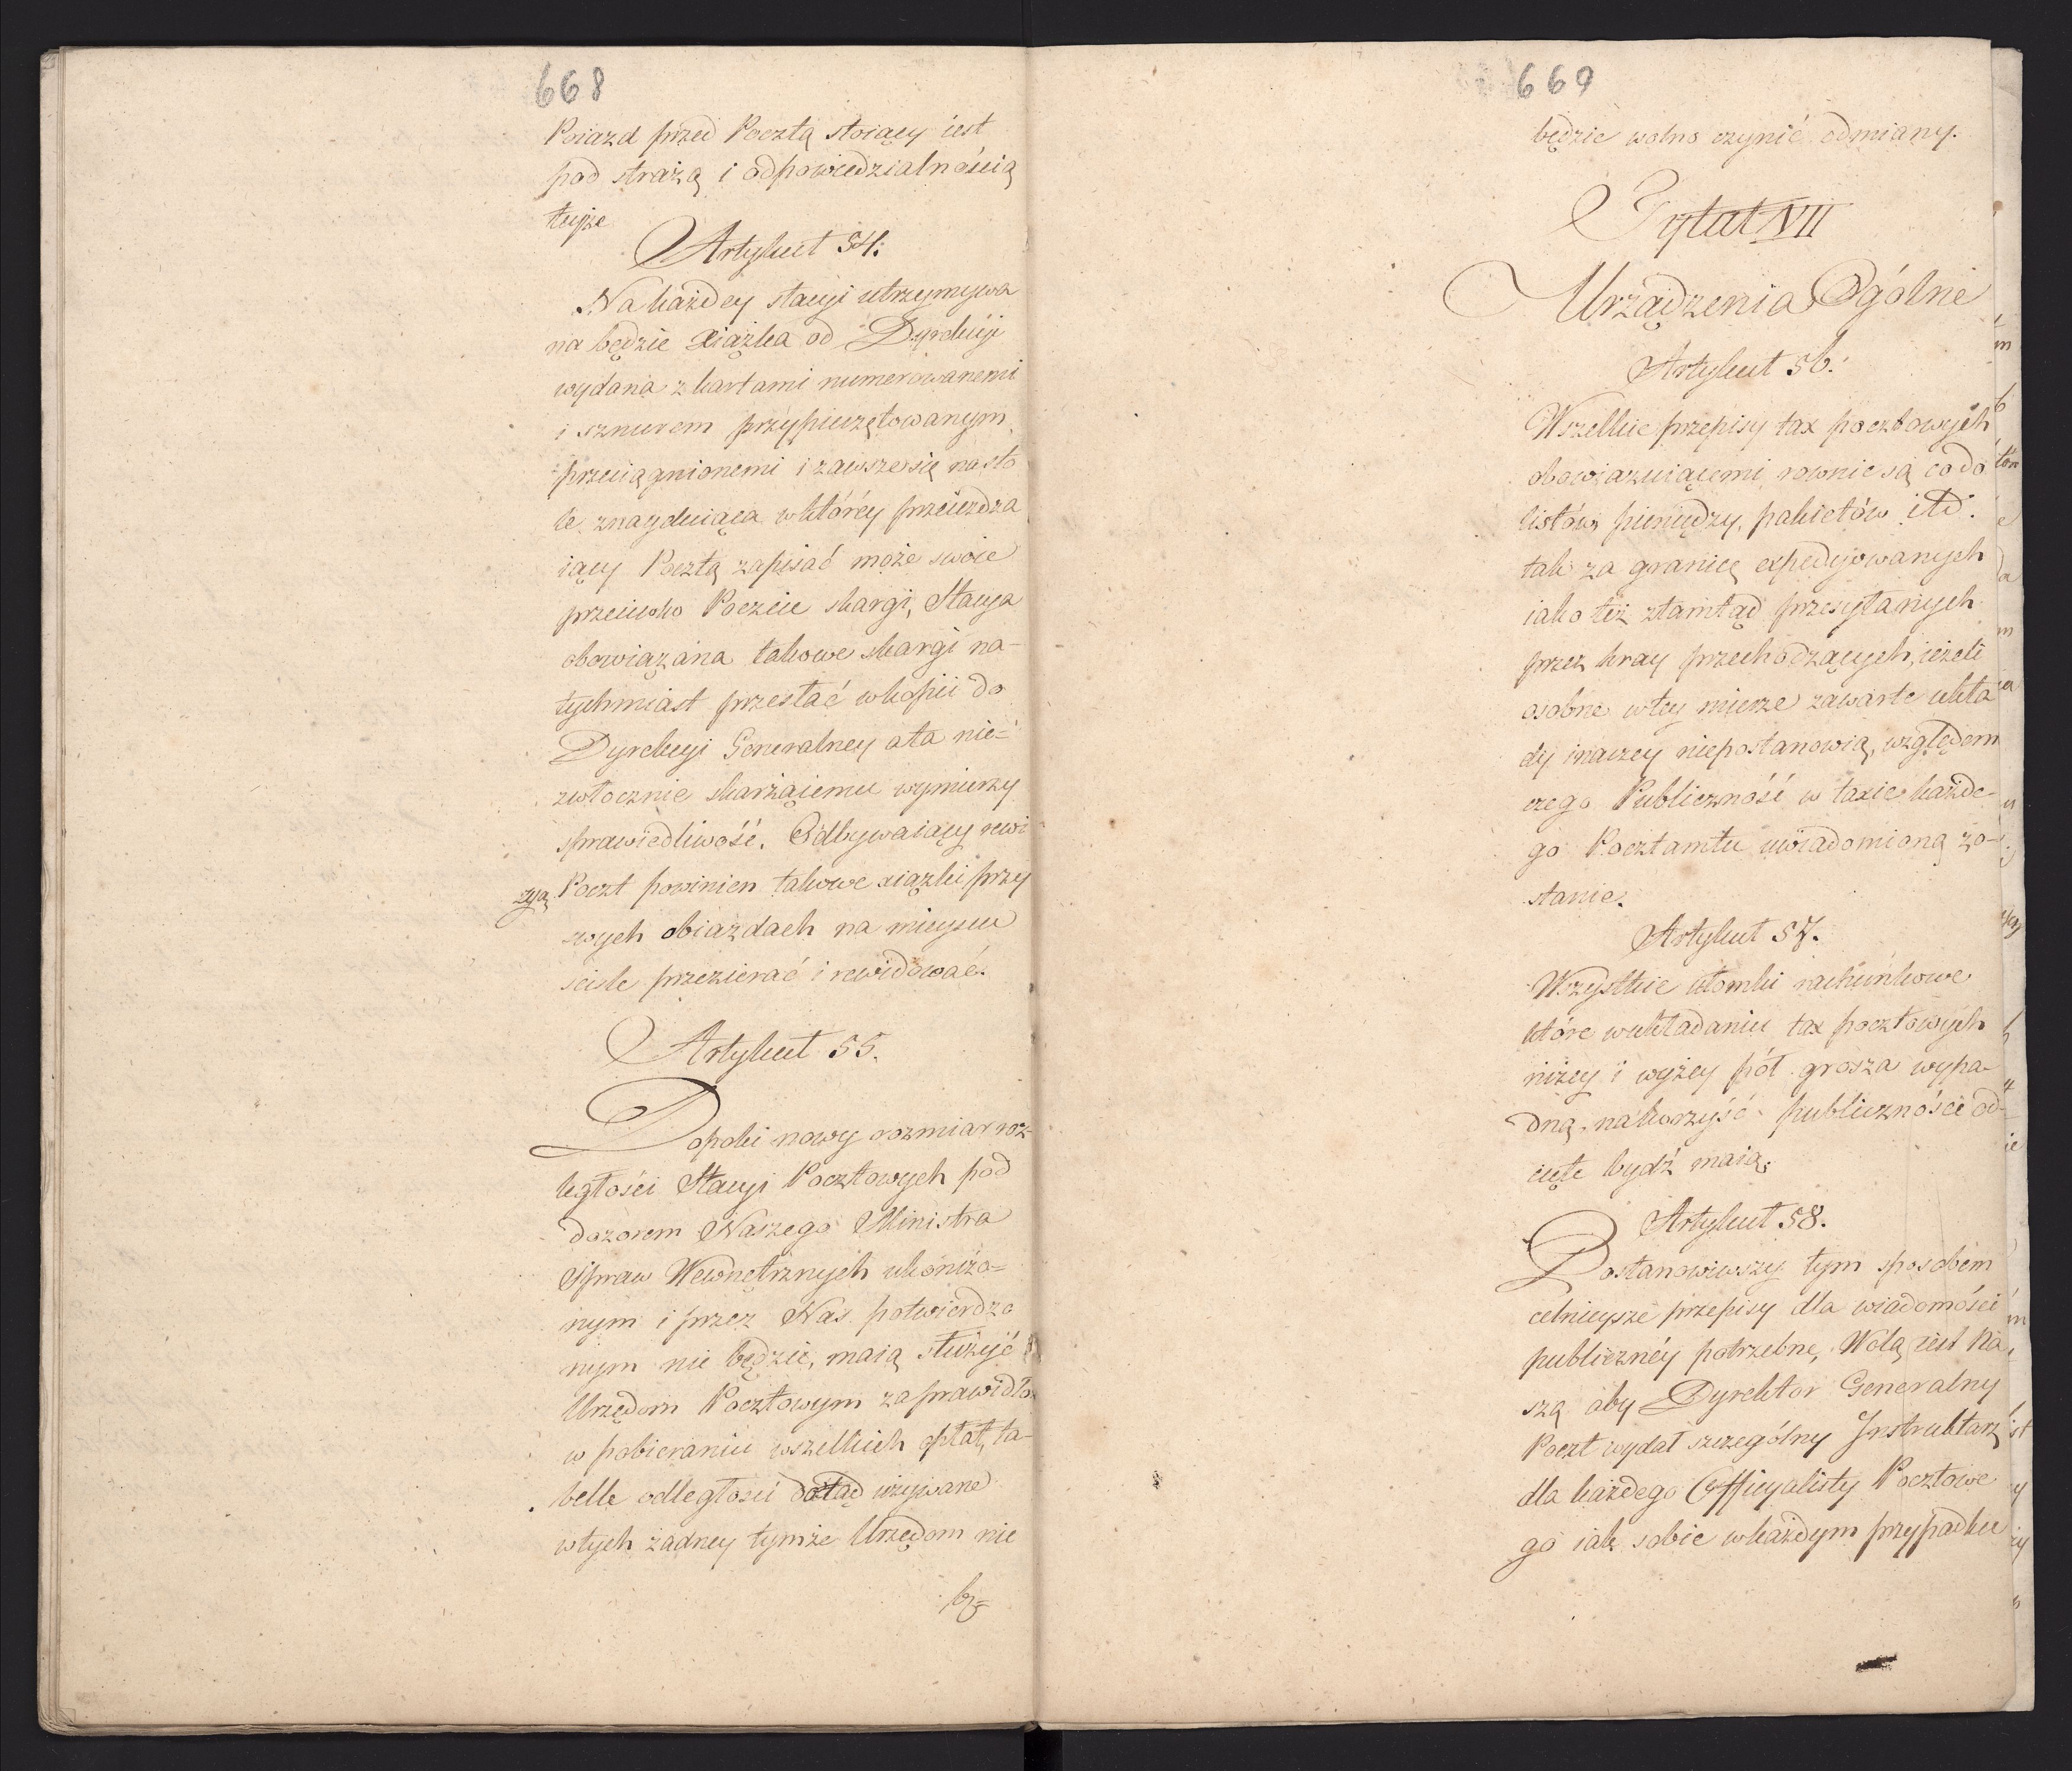 668
Poiazd przed Pocztą stoiący iest
pod strażą i odpowiedzialnością
teyże
Artykuł 54.
Na każdey stacyi utrzymywa
na będzie xiążka od Dyrekcyi
wydana z kartami numerowanemi
i sznurem przypieczętowanym
przeciągnionemi i zawsze się na sto
le znayduiąca w którey przeieżdża
iący Pocztą zapisać może swoie
przeciwko Poczcie skargi, Stacya
obowiązana takowe skargi na-
tychmiast przesłać w kopii do
Dyrekcyi Generalney a ta nie=
zwłocznie skarżącemu wymierzy
sprawiedliwość. Odbywaiący rewi
zyą Poczt powinien takowe xiążki przy
swych obiazdach na mieyscu
sciśle przezierać i rewidować.
Artykuł 55.
Dopóki nowy rozmiar roz-
ległości Stacyi Pocztowych pod
dozorem Naszego Ministra
Spraw Wewnętrznych ukończo=
nym i przez Nas potwierdzo
nym nie będzie, maią służyć
Urzędom Pocztowym za prawidło
w pobieraniu wszelkich opłat, ta-
belle odległości dotąd używane
w tych żadney tymże Urzędom nie
bę=
669
będzie wolno czynić odmiany.
Tytuł VII
Urządzenia Ogólne
Artykuł 56.
Wszelkie przepisy tax pocztowych
obowiązuiącemi rownie są co do
listów, pieniędzy, pakietów itd.
tak za granicę expedyjowanych
iako też ztamtąd przesyłanych
przez kray przechodzących, ieżeli
osobne w tey mierze zawarte ukła
dy inaczey niepostanowią, względem
czego Publiczność w taxie każde-
go Pocztamtu uwiadomioną zo-
stanie.
Artykuł 57.
Wszystkie ułomki rachunkowe
które w układaniu tax pocztowych
niżey i wyżey pół grosza wypa-
dną, na korzyść publiczności od-
cięte bydź maią.
Artykuł 58.
Postanowiwszy tym sposobem
celnieysze przepisy dla wiadomości
publiczney potrzebne, Wolą iest Na
szą aby Dyrektor Generalny
Poczt wydał szczególny Instruktarz
dla każdego Officyalisty Pocztowe
go iak sobie w każdym przypadku